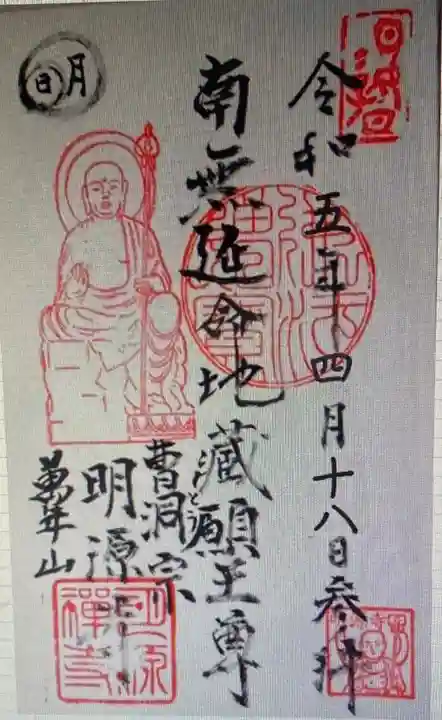 令和五年四月十八日参拝
南無延命地藏願王尊
曹洞宗
明源寺
萬年山
月
日
明源
禅寺